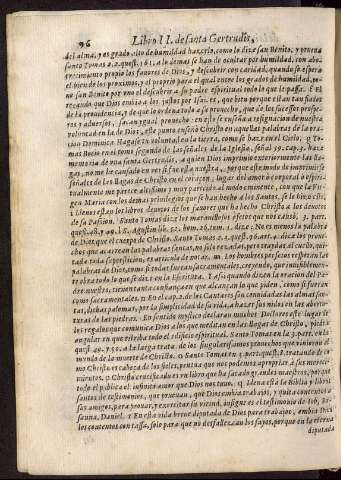 96 Libro II. de santa Gertrudis,
del alma, y es grado alto de humildad hazerlo, como lo dize san Benito, y prueua
santo Tomas 2.2. quest. 161. a lo demas se han de ocultar por humildad, con
recimiento propio los fauores de Dios, y descubrir con caridad, quando se espera
el bien de los proximos, y al propio para el entre los grados de humildad, po-
ne san Benito por vno el descubrir a su padre espiritual todo lo que le passa. f El
rezando que Dios embia a los justos
de la prouidencia, y de que lo ordena todo a su prouecho, que de los sucessos prospe-
ros y aduersos, sacan ygual prouecho: en esto se enseña a resignacion de nuestra
voluntad en la de Dios, esto junto enseñó Christo en aquellas palabras de la ora-
cion Dominica Hagase tu voluntad en la tierra, como se haze en el Cielo. g To-
mas Bocio en el tomo segundo de las señales de la Iglesia, señal 59. cap. 3. haze
memoria de esta santa Gertrudis, a quien Dios imprimio exteriormente las lla-
gas, no me he cansado en ver si fue esta nuestra, porque este modo de imprimirse
señales de las llagas de Christo en el coraçon, lugar del amor o corporal o espiri-
tualmente me parece altissimo y muy parecido al modo eminente, con que la Vir-
gen Maria con los demas priuilegios que se han hecho a los Santos,
i Llenos estan los libros deuotos de los fauores que ha hecho Christo a los deuotos
de su Passion. Santo Tomas dize los marauillosos efetos que nos causó. 3. part.
quest. 48. y 49. l S. Agustin lib. 50. hom. 26. tom. 1. dize: No es menos la palabra
de Dios, que el cuerpo de Christo. Santo Tomas 2.2. quest. 96. art. 4. dize los proue-
chos que acarrean las palabras santas, no solo rezadas, pero traydas al cuello, qui-
tada toda supersticion, es articulo de notar. m Los hombres perfetos respetan las
palabras de Dios, como si todas fueran sacramentales, creyendo, que
se obra todo lo que se dize en la Escritura. Y assi quando dizen la oracion del Pa-
dre nuestro, tienen tanta confiança en que alcançan lo que piden, como si fueran
como sacramentales. n En el cap. 2. de los Cantares son combidadas las almas san-
tas, dichas palomas, por la simplicidad de su vida, a hazer sus nidos en las aber-
turas de las piedras. En sentido mistico declaran muchos Doctores este lugar de
los regalos que comunica Dios a los que meditan en las llagas de Christo, piedra
angular en que estriba todo el edificio espiritual. Santo Tomas en la 3. part. en la
quest. 49. y 50. a la larga trata de los singularissimos prouechos que vinieron al
mundo de la muerte de Christo. o Santo Tomas en 3. part. quest. 8. tratando de co-
mo Christo es cabeça de los fieles, pensaua que nos podemos apropriar a sus mereci-
mientos. p Christo crucificado es vn libro que ha sacado grandes maestros, porque
todo el publica el infinito amor que Dios nos tuuo. q Llena está la Biblia y libros
santos de testimonios, que prueuan, que Dios embia trabajos, y quita contentos a
sus amigos, para prouar, y exercitar su virtud, insigne es el testimonio de Iob,
sauna, Daniel. r En esta vida breue diputada de Dios para trabajos, embia Dios
los contentos con tassa, solo para que no desfallezcan los suyos, porque en la eterna
diputada